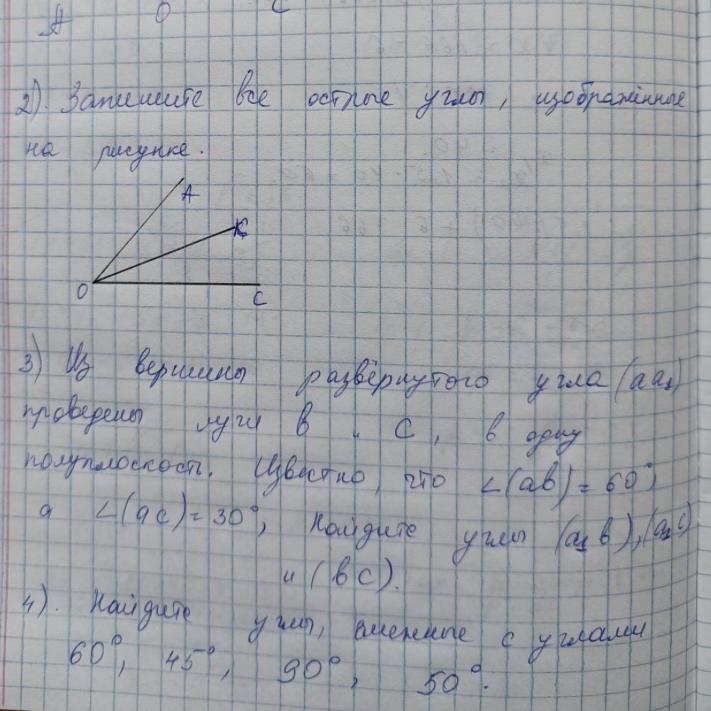 А О С
2). Запишите все острые углы, изображённые
на рисунке.
А
К
О
С
3) Из вершины развёрнутого угла (аа₁)
проведены лучи в и с, в одну
полуплоскость. Известно, что ∠(ав) = 60°,
а ∠(ас) = 30°, Найдите углы (а₁в), (а₁с)
и (вс).
4). Найдите углы, смежные с углами
60°, 45°, 90°, 50°.